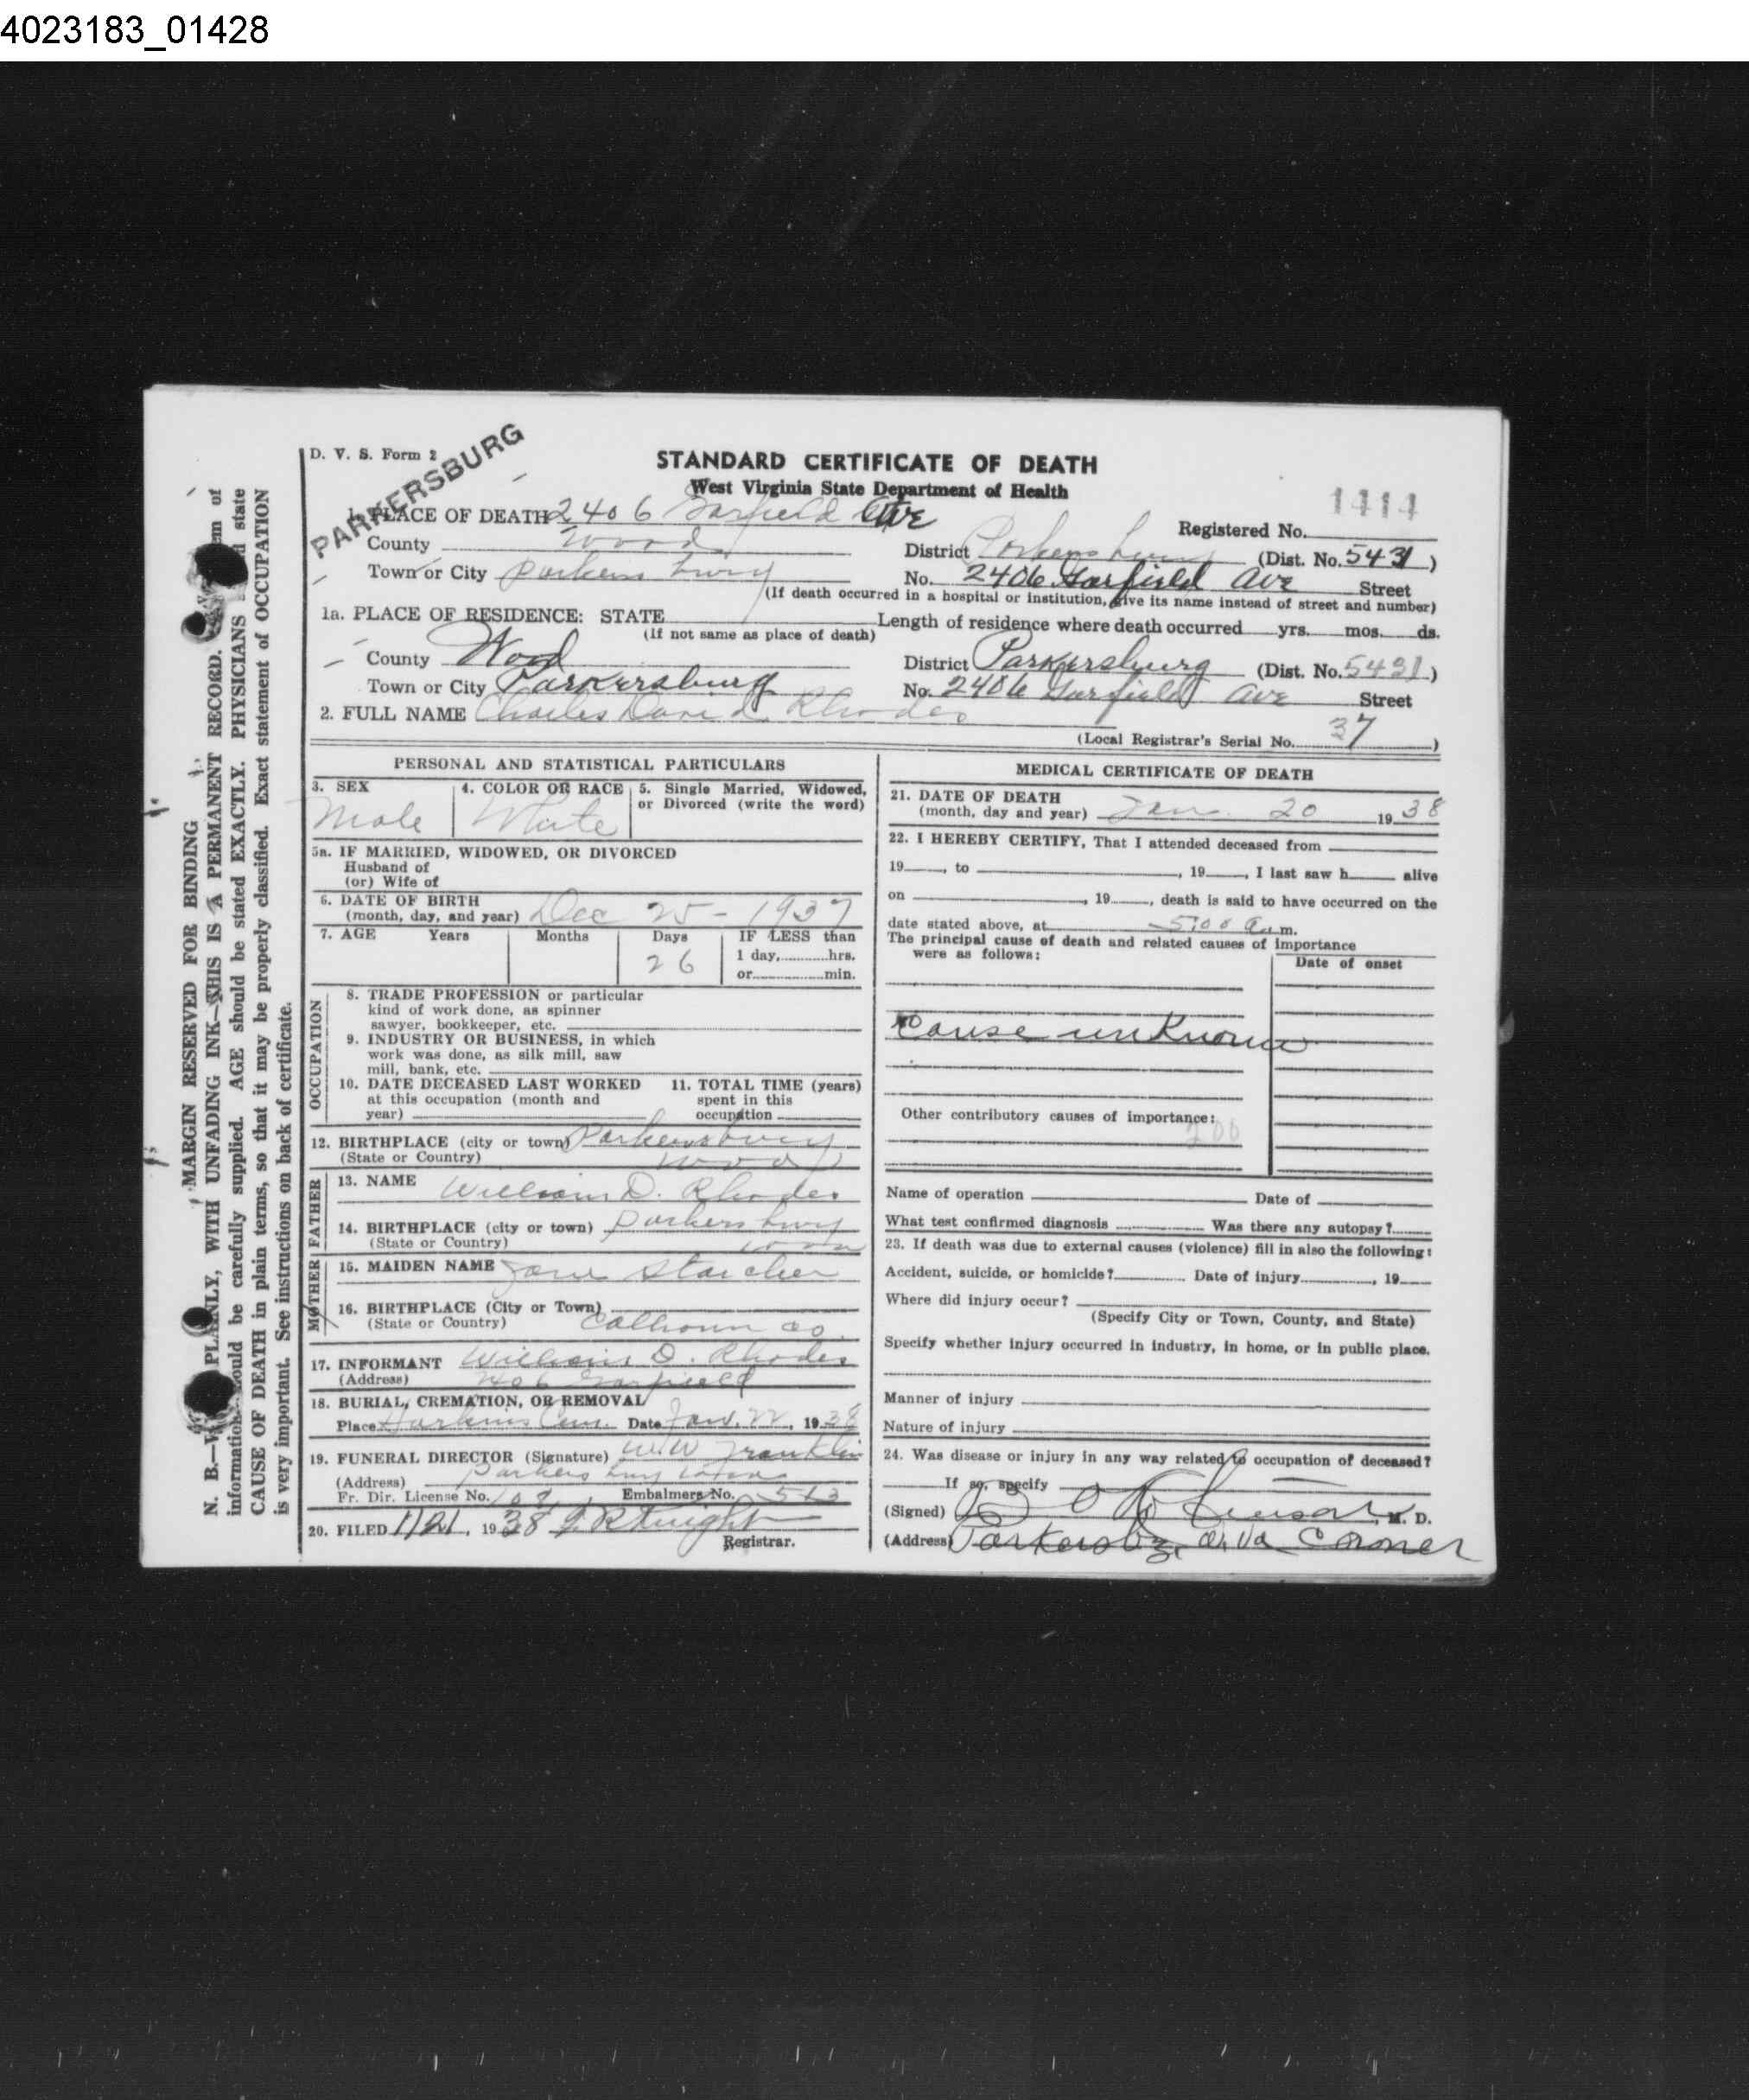 4023183_01428
D. V. S. Form 2
PARKERSBURG
STANDARD CERTIFICATE OF DEATH
West Virginia State Department of Health
1414
1. PLACE OF DEATH 2406 Garfield Ave
Registered No.
County Wood
District Parkersburg (Dist. No. 5431)
Town or City Parkersburg
No. 2406 Garfield Ave Street
(If death occurred in a hospital or institution, give its name instead of street and number)
1a. PLACE OF RESIDENCE: STATE
(If not same as place of death)
Length of residence where death occurred yrs. mos. ds.
County Wood
District Parkersburg (Dist. No. 5431)
Town or City Parkersburg
No. 2406 Garfield Ave Street
2. FULL NAME Charles David Rhodes
(Local Registrar's Serial No. 37)
PERSONAL AND STATISTICAL PARTICULARS
3. SEX Male
4. COLOR OR RACE White
5. Single Married, Widowed,
or Divorced (write the word)
5a. IF MARRIED, WIDOWED, OR DIVORCED
Husband of
(or) Wife of
6. DATE OF BIRTH
(month, day, and year) Dec 25 - 1937
7. AGE Years Months Days IF LESS than
26 1 day, hrs.
or min.
OCCUPATION
8. TRADE PROFESSION or particular
kind of work done, as spinner
sawyer, bookkeeper, etc.
9. INDUSTRY OR BUSINESS, in which
work was done, as silk mill, saw
mill, bank, etc.
10. DATE DECEASED LAST WORKED
at this occupation (month and
year)
11. TOTAL TIME (years)
spent in this
occupation
12. BIRTHPLACE (city or town) Parkersburg
(State or Country) Wood
FATHER
13. NAME William D. Rhodes
14. BIRTHPLACE (city or town) Parkersburg
(State or Country)
MOTHER
15. MAIDEN NAME Jane Starcher
16. BIRTHPLACE (City or Town)
(State or Country) Calhoun co.
17. INFORMANT William D. Rhodes
(Address) 2406 Garfield
18. BURIAL, CREMATION, OR REMOVAL
Place Cem. Date Jan. 22, 1938
19. FUNERAL DIRECTOR (Signature) W W Franklin
(Address) Parkersburg
Fr. Dir. License No. Embalmers No. 513
20. FILED 1/21, 1938 Knight
Registrar.
MEDICAL CERTIFICATE OF DEATH
21. DATE OF DEATH
(month, day and year) Jan. 20 1938
22. I HEREBY CERTIFY, That I attended deceased from
19 , to , 19 , I last saw h alive
on , 19 , death is said to have occurred on the
date stated above, at 5:00 a.m.
The principal cause of death and related causes of importance
were as follows:
Date of onset
Cause unknown
Other contributory causes of importance:
200
Name of operation Date of
What test confirmed diagnosis Was there any autopsy?
23. If death was due to external causes (violence) fill in also the following:
Accident, suicide, or homicide? Date of injury , 19
Where did injury occur?
(Specify City or Town, County, and State)
Specify whether injury occurred in industry, in home, or in public place.
Manner of injury
Nature of injury
24. Was disease or injury in any way related to occupation of deceased?
If so, specify
(Signed) M. D.
(Address) Parkersbg, W. Va Coroner
MARGIN RESERVED FOR BINDING
N. B.— PLAINLY, WITH UNFADING INK—THIS IS A PERMANENT RECORD. em of
information should be carefully supplied. AGE should be stated EXACTLY. PHYSICIANS state
CAUSE OF DEATH in plain terms, so that it may be properly classified. Exact statement of OCCUPATION
is very important. See instructions on back of certificate.